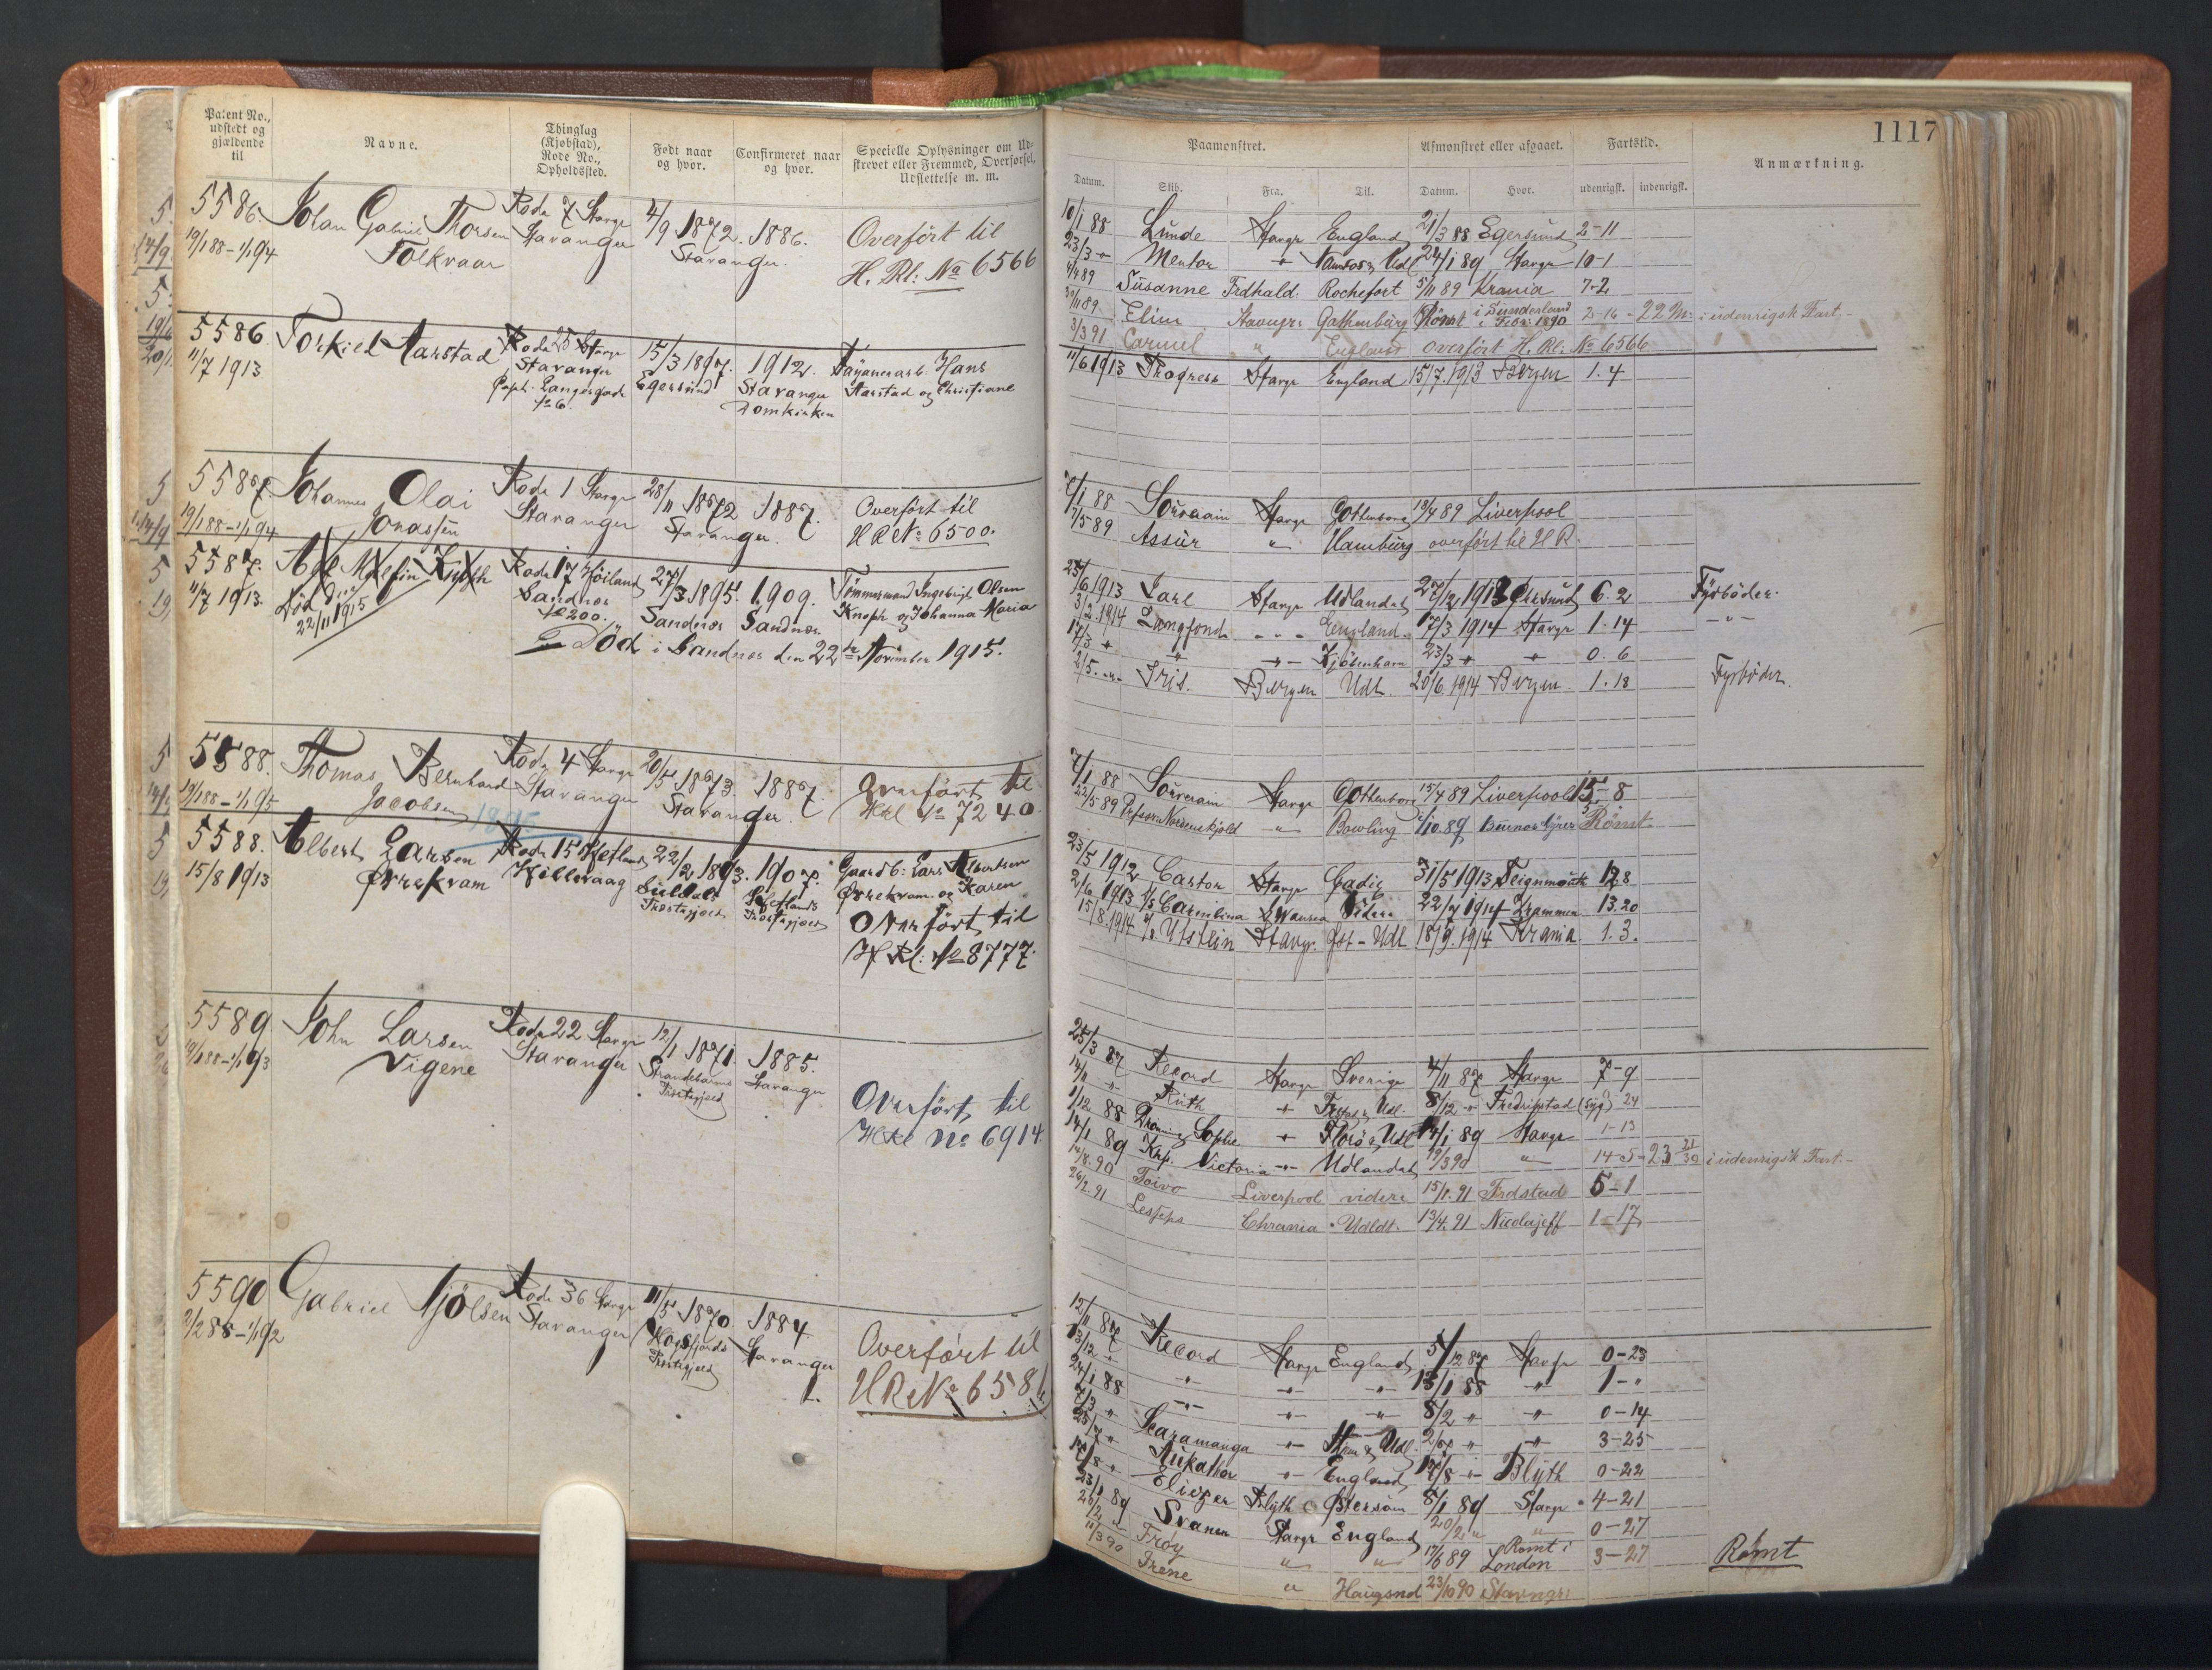 Patent No., udstedt og gjældende til
Navne.
Thinglag (Kjøbstad), Rode No., Opholdssted.
Født naar og hvor.
Confirmeret naar og hvor.
Specielle Oplysninger om Udskrevet eller Fremmed, Overførsel, Udslettelse m. m.
5586. Johan Gabriel Thorsen Rode 7 Stavgr 4/9 1872. 1886. Overført til
19/1 88 – 1/1 94 Folkvaar Stavanger Stavanger. H. Rl: No 6566
5586. Torkiel Aarstad Rode 25 Stavgr 15/3 1897. 1912. Hans
11/7 1913 Stavanger Egersund Stavanger Aarstad og Christiane
Opsh. Langesgade Domkirken
No 6.
5587 Johannes Olai Rode 1 Stavgr 28/11 1872 1887. Overført til
19/1 88 – 1/1 94 Jonassen Stavanger Stavanger. H R No 6500.
5587. Rode 17 Høiland 27/3 1895. 1909. Tømmermand Ingebrigt Olsen
11/7 1913. Død den Sandnes Sandnes Sandnes Knoph og Johanna Maria
22/11 1915 No 200.
Død i Sandnes den 22de November 1915.
5588. Thomas Bernhard Rode 4 Stavgr 20/5 1873. 1887. Overført til
19/1 88 – 1/1 95 Jacobsen Stavanger Stavanger. H Rl No 7240.
1895
5588. Albert Larsen Rode 15 Hetland 22/2 1893. 1907. Gaardb: Lars Albertsen
15/8 1913 Ørrekvam Hillevaag Suldals Hetlands Ørrekvam og Karen
Præstegjæld Præstegjæld Overført til
H Rl: No 8777.
5589 John Larsen Rode 22 Stavgr 12/1 1871. 1885.
19/1 88 – 1/1 93 Vigene Stavanger Strandebarms Stavanger
Præstegjæld Overført til
H Rl No 6914.
5590 Gabriel Njølsen Rode 36 Stavgr 11/5 1870 1884
2/2 88 – 1/1 92 Stavanger Høgsfjords Stavanger Overført til
Præstegjeld H R No 6581
1117
Paamønstret.
Afmønstret eller afgaaet.
Fartstid.
Anmærkning.
Datum. Skib. Fra. Til. Datum. Hvor. udenrigsk. indenrigsk.
10/1 88 Linde Stavgr England 21/3 88 Egersund 2-11
23/3 " Mentor " & Udl 24/1 89 Stavgr 10-1
4/4 89 Susanne Frdhald: Rochefort 5/11 89 Krania 7-2
30/11 89. Elim Stavngr: Gøthenburg Rømt i Sunderland i Febr: 1890 2-16 - 22 M: i udenrigsk Fart.-
3/3 91 Carmel " England overført H. Rl: No 6566
11/6 1913 Progress Stavgr England 15/7. 1913 Bergen 1. 4
7/1 88 Souverain Stavgr Gottenborg 18/4 89 Liverpool
7/5 89 Assur " Hamburg overført til H R.
25/6 1913 Jarl Stavgr Udlandet 27/12 1913 6. 2 Fyrbøder.
3/2. 1914 Langfond - " - England. 17/3 1914 Stavgr 1. 14 - " -
17/3 " " - " - Kjøbenhavn 23/3 " " 0. 6
2/5. " Iris. Bergen Udl. 20/6. 1914 Bergen. 1. 18 Fyrbøder.
7/1 88 Souverain Stavgr Gottenborg 15/4 89 Liverpool 15-8
22/5 89 Professor Nordenskjold " Bowling 1/10. 89 Buenos Ayres Rømt
23/5 1912 Castor Stavgr Cadiz 31/5 1913 Teignmouth 12 8
2/6 1913 S/S Carmbina Swansea videre 22/7 1914 Drammen 13. 20
15/8. 1914 S/S Utstein Stavgr. Øst - Udl 18/9. 1914 Krania 1. 3.
25/3 87 Record Stavgr Sverige 4/11 87 Stavgr 7-9
14/11 " Ruth " & Udl. 8/12 " Fredrikstad (syg) 24
1/12 88 Dronning Sophie " Florø & Udl 14/1 89 Stavgr 1-13
14/1 89 Krp. Victoria " Udlandet 19/3 90 " 14-5 - 23 21/30 i udenrigsk Fart.-
14/8. 90 Toivo Liverpool videre 15/1. 91 Frdstad 5-1
26/2. 91 Lesseps Chrania Udldt. 13/4. 91 Nicolajeff 1-17
12/11 87 Record Stavgr England 5/12 87 Stavgr 0-23
13/12 " " " " 13/1 88 " 1-"
24/1 88 " " " 8/2 " " 0-14
7/3 " Scaramanga " & Udl. 2/7 " " 3-25
25/7 " " England 17/8 " Blyth 0-22
17/8 " Eliezer Blyth Østersøen 8/1 89 Stavgr 4-21
23/1 89 Svanen Stavgr England 20/2 " " 0-27
20/2 " Frøy " " 17/6 89 Rømt i London 3-27 Rømt
11/3 90 Irene " Haugsnd 23/10 90 Stavngr: